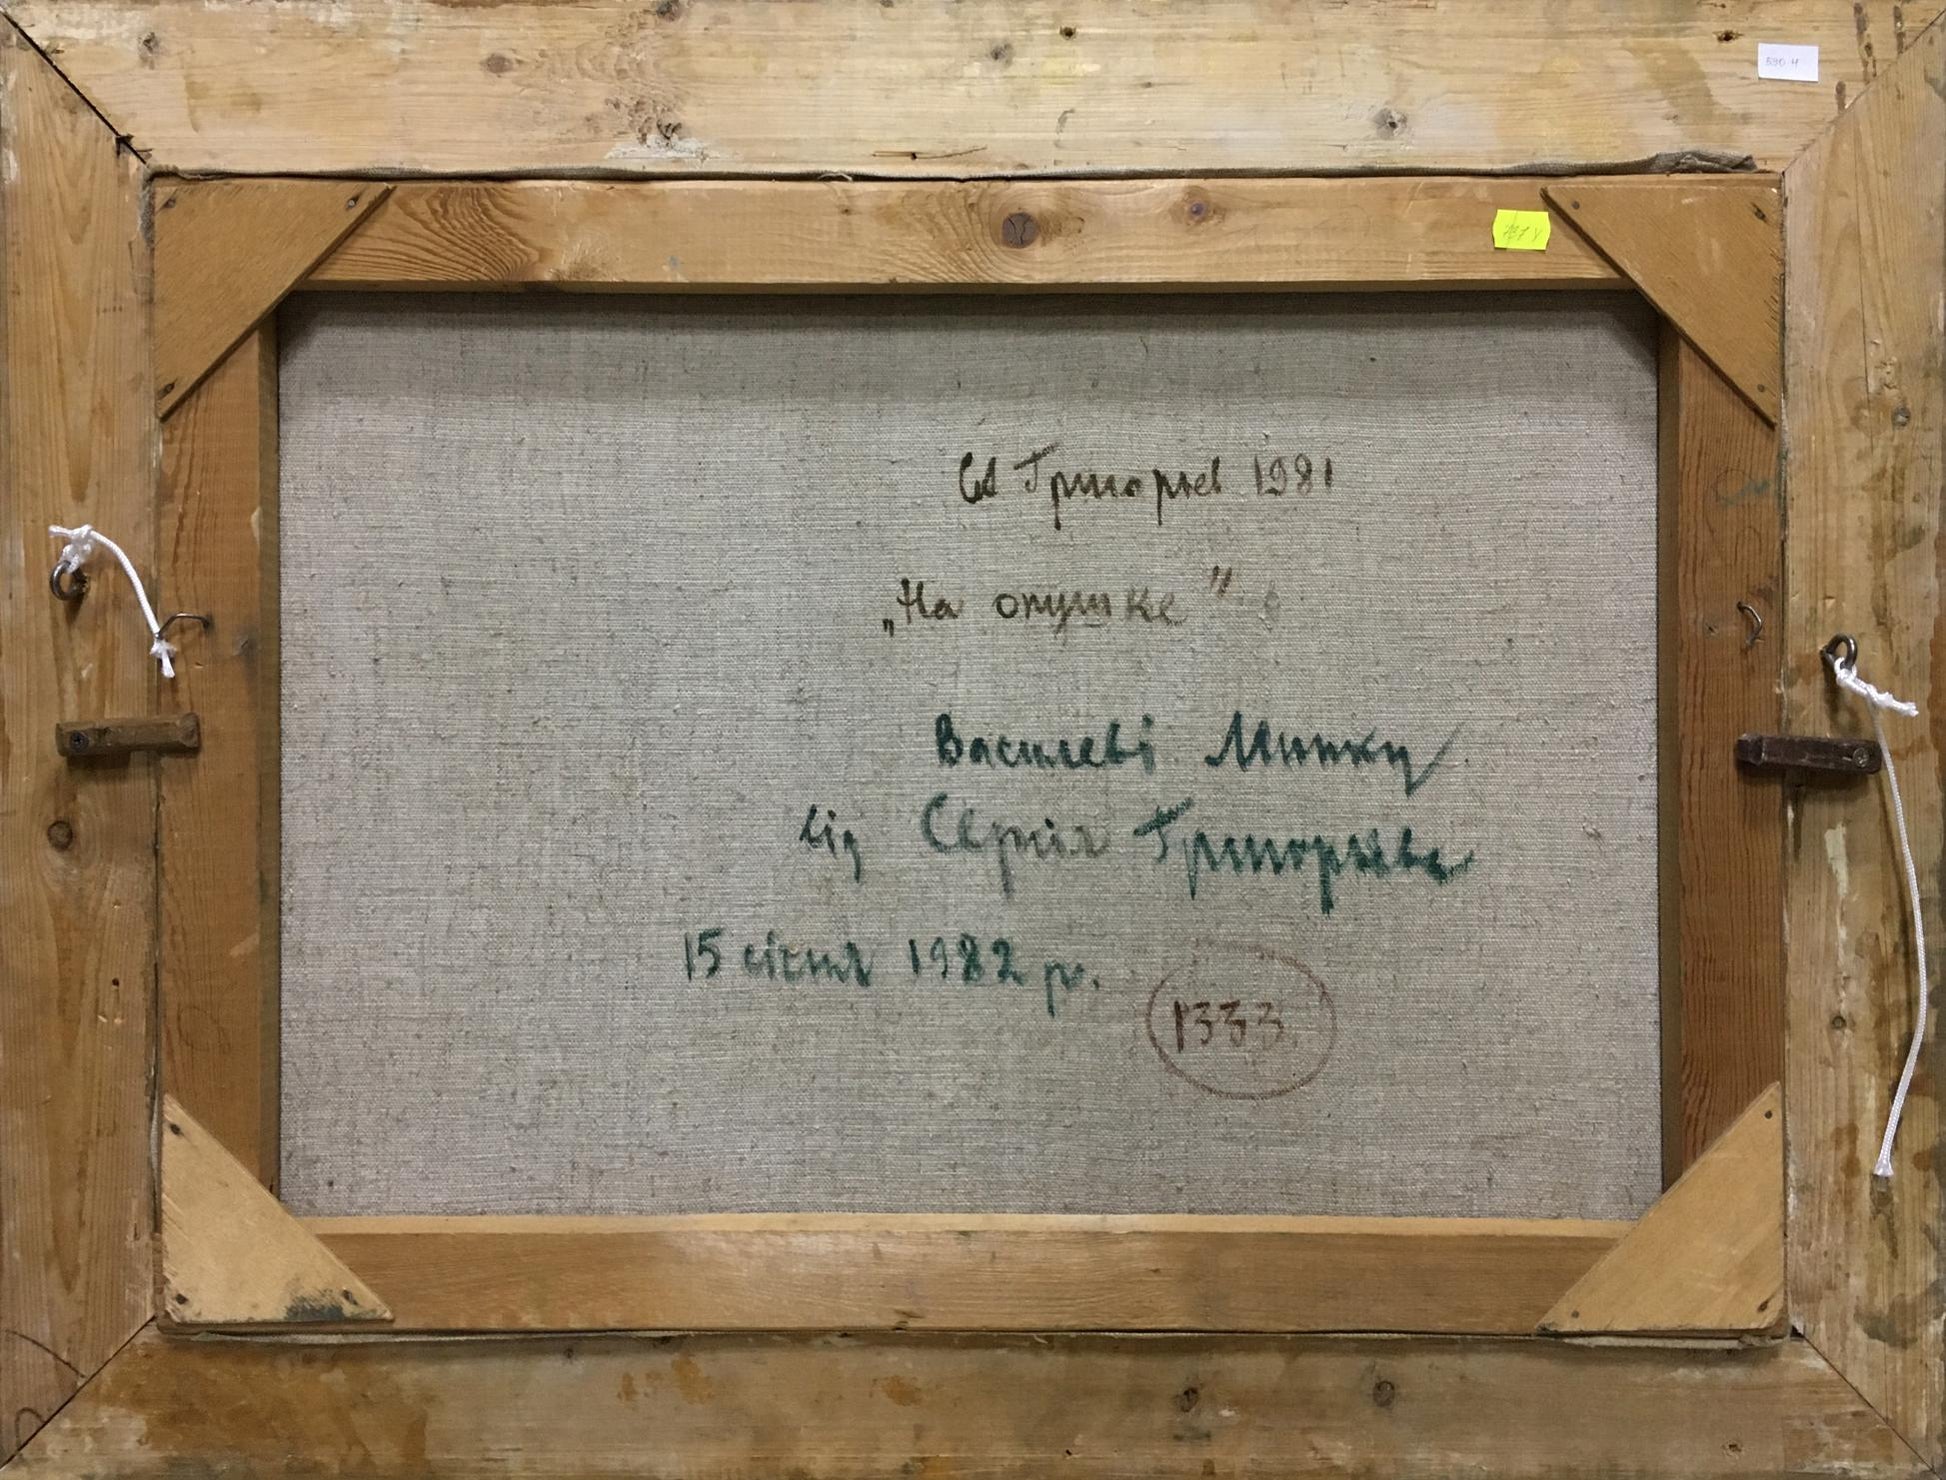 590 Н
СА Григорьев 1981
„На опушке"
Василеві Минку
від Сергія Григорьєва
15 січня 1982 р.
1333